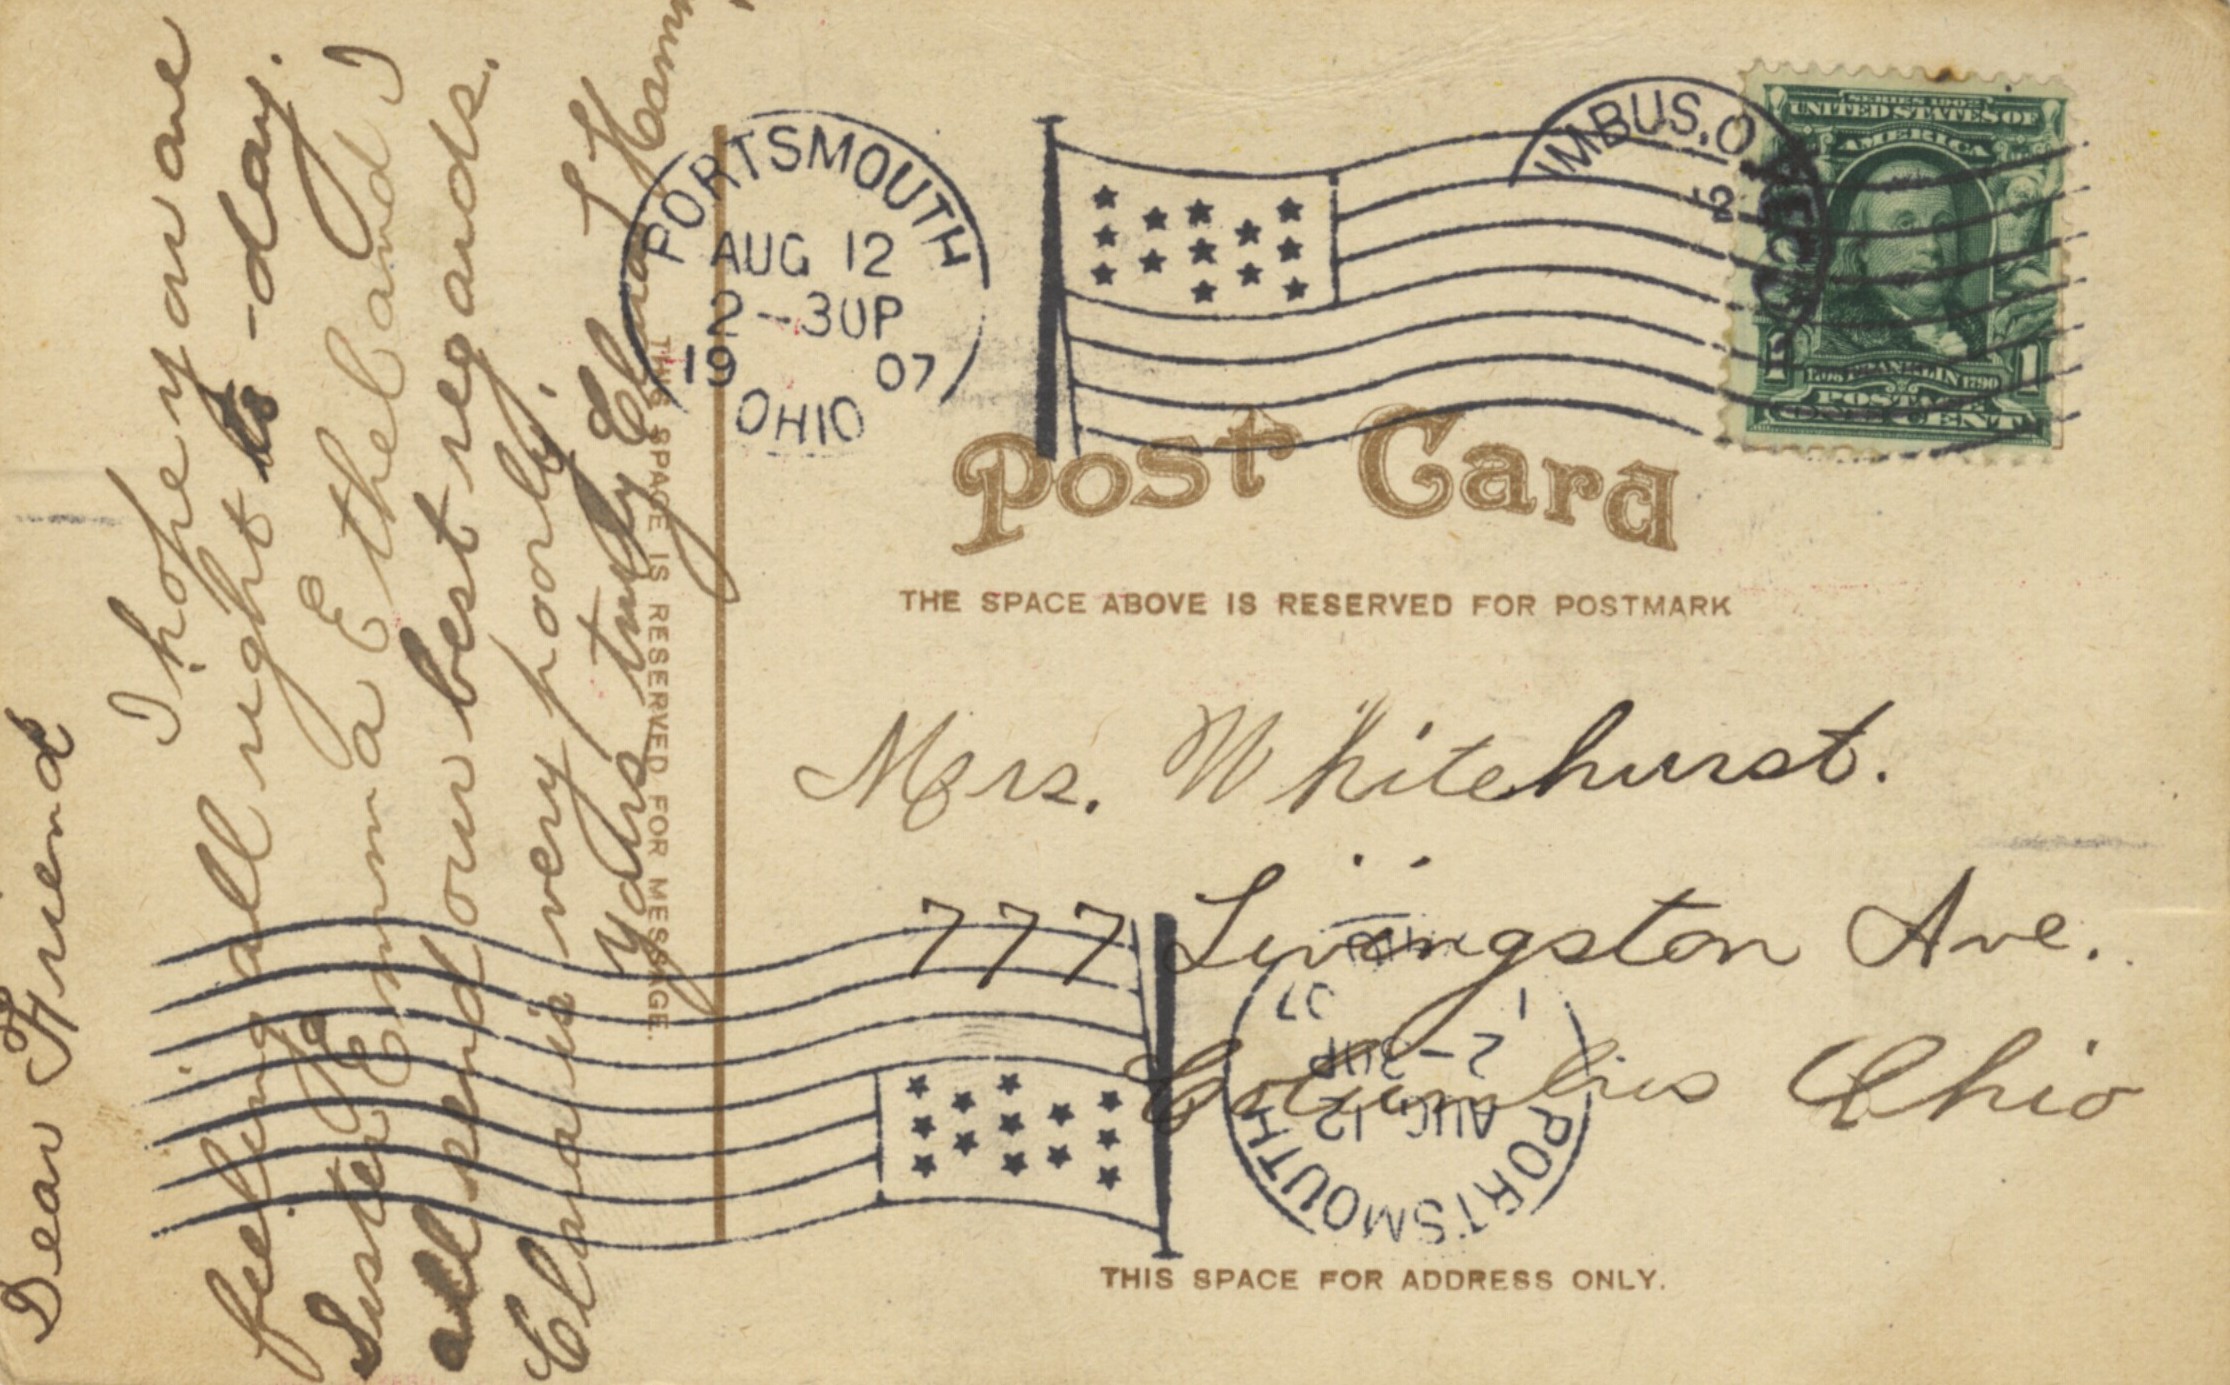 Dear Friend
I hope you are
feeling all right to-day.
Sister Emma Ethel and I
all send our best regards.
Clara is very poorly.
Yours truly Elva L Hamm
THIS SPACE IS RESERVED FOR MESSAGE.
PORTSMOUTH
AUG 12
2--30P
19 07
OHIO
MBUS, O
SERIES 1902
UNITED STATES OF
AMERICA
1706 FRANKLIN 1790
POSTAGE
ONE CENT
1 1
Post Card
THE SPACE ABOVE IS RESERVED FOR POSTMARK
Mrs. Whitehurst.
777 Livingston Ave.
Columbus Ohio
PORTSMOUTH
AUG 12
2-30P
1 07
THIS SPACE FOR ADDRESS ONLY.